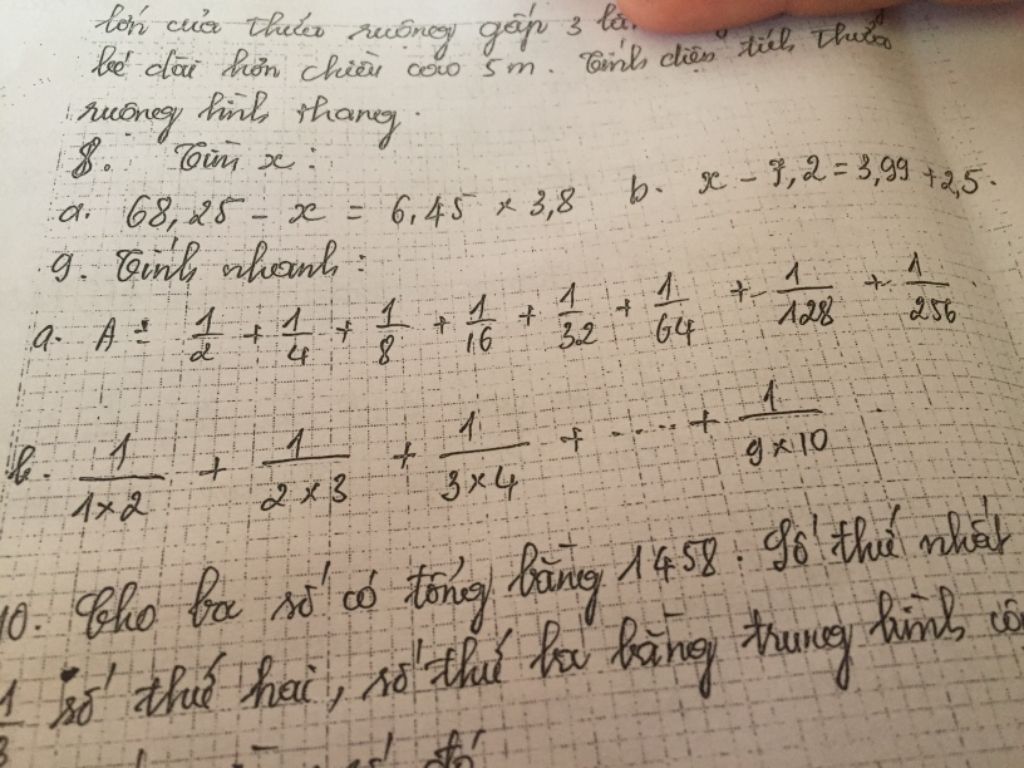 lớn của thửa ruộng gấp 3
bé dài hơn chiều cao 5m. Tính diện tích thửa
ruộng hình thang.
8. Tìm x :
a. 68,25 - x = 6,45 × 3,8 b. x - 7,2 = 3,99 + 2,5.
9. Tính nhanh :
a. A = 1/2 + 1/4 + 1/8 + 1/16 + 1/32 + 1/64 + 1/128 + 1/256
b. 1/(1×2) + 1/(2×3) + 1/(3×4) + ..... + 1/(9×10)
10. Cho ba số có tổng bằng 1458. Số thứ nhất
1/3 số thứ hai, số thứ ba bằng trung bình
số đó